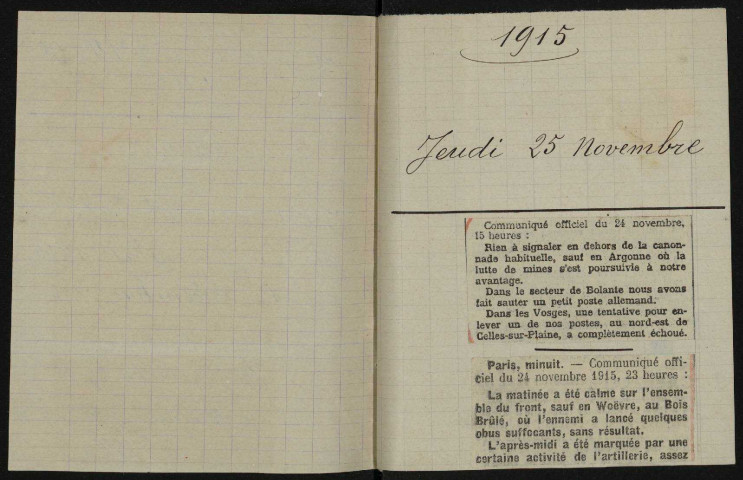 1915
Jeudi 25 Novembre
Communiqué officiel du 24 novembre,
15 heures :
Rien à signaler en dehors de la canon-
nade habituelle, sauf en Argonne où la
lutte de mines s'est poursuivie à notre
avantage.
Dans le secteur de Bolante nous avons
fait sauter un petit poste allemand.
Dans les Vosges, une tentative pour en-
lever un de nos postes, au nord-est de
Celles-sur-Plaine, a complètement échoué.
Paris, minuit. — Communiqué offi-
ciel du 24 novembre 1915, 23 heures :
La matinée a été calme sur l'ensem-
ble du front, sauf en Woëvre, au Bois
Brûlé, où l'ennemi a lancé quelques
obus suffocants, sans résultat.
L'après-midi a été marquée par une
certaine activité de l'artillerie, assez